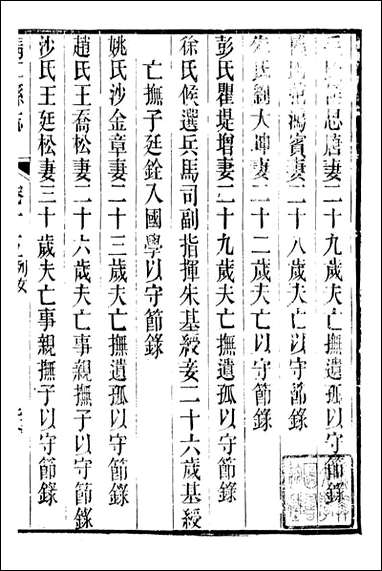 思唐妻二十九歲夫亡撫遺孤以守節錄
鴻賓妻二十八歲夫亡以守節錄
氏劉大坤妻二十二歲夫亡以守節錄
彭氏瞿堤增妻二十九歲夫亡撫遺孤以守節錄
徐氏候選兵馬司副指揮朱基綬妾二十六歲基綬
亡撫子廷銓入國學以守節錄
姚氏沙金章妻二十三歲夫亡撫遺孤以守節錄
趙氏王喬松妻二十六歲夫亡事親撫子以守節錄
沙氏王廷松妻三十歲夫亡事親撫子以守節錄
列女